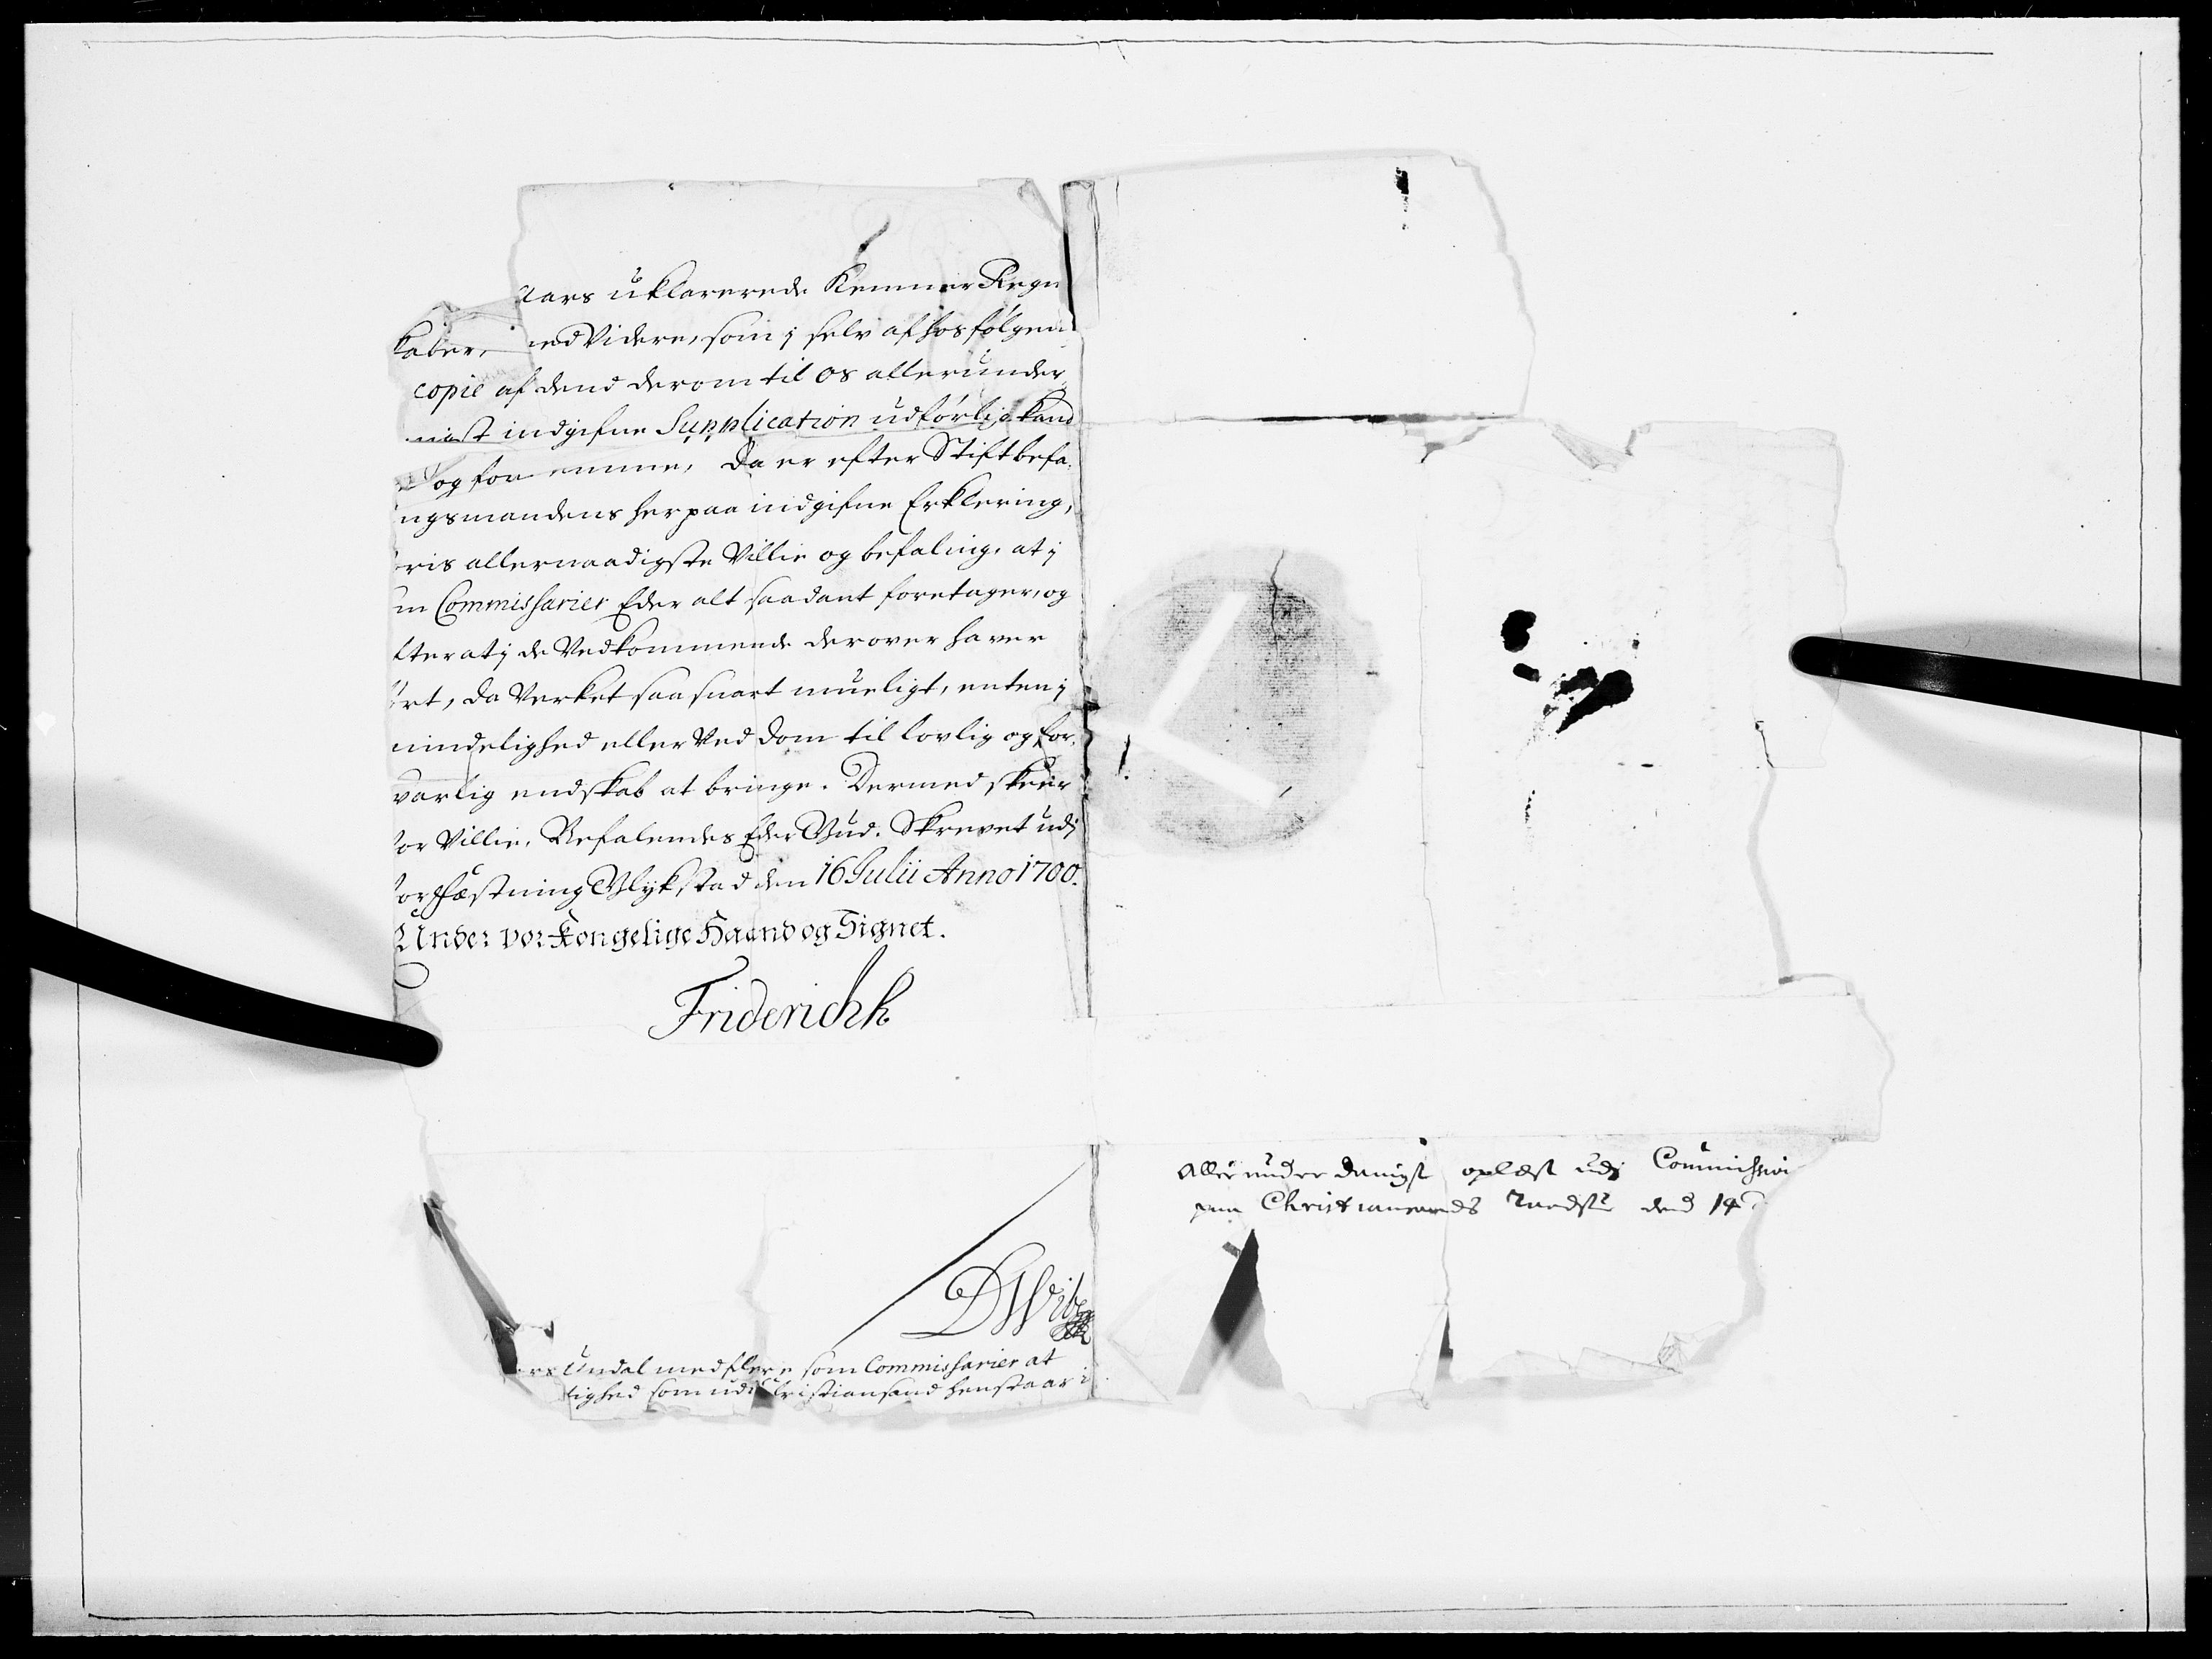 aars uklarerede Kemner Regn
kaber, med Videre, som j selv af hosfølgen
copie af dend derom til os allerunder
nigst indgifne Supplication udførlig kand
og for emme, Da er efter Stiftbefa-
ngsmandens herpaa indgifne Erklering,
oris allernaadigste Villie og befaling, at j
om Commissarier Eder alt saadant foretager, og
fter at j de Vedkommende derover haver
ørt, da Verket saa snart mueligt, enten j
mindelighed eller Ved Dom til lovlig og for-
svarlig endskab at bringe. Dermed skeer
vor Villie. Befalendes Eder Gud. Skrevet udj
vor Fæstning Glykstad den 16 Julii Anno 1700.
Under vor Kongelige Haand og Signet.
Friderich
DWibe
ers Undal med flere som Commissarier at
lighed som udi Christiansand henstaar i
Allerunderdanigst oplæst udj Commission
paa Christiansands Raadstue dend 14